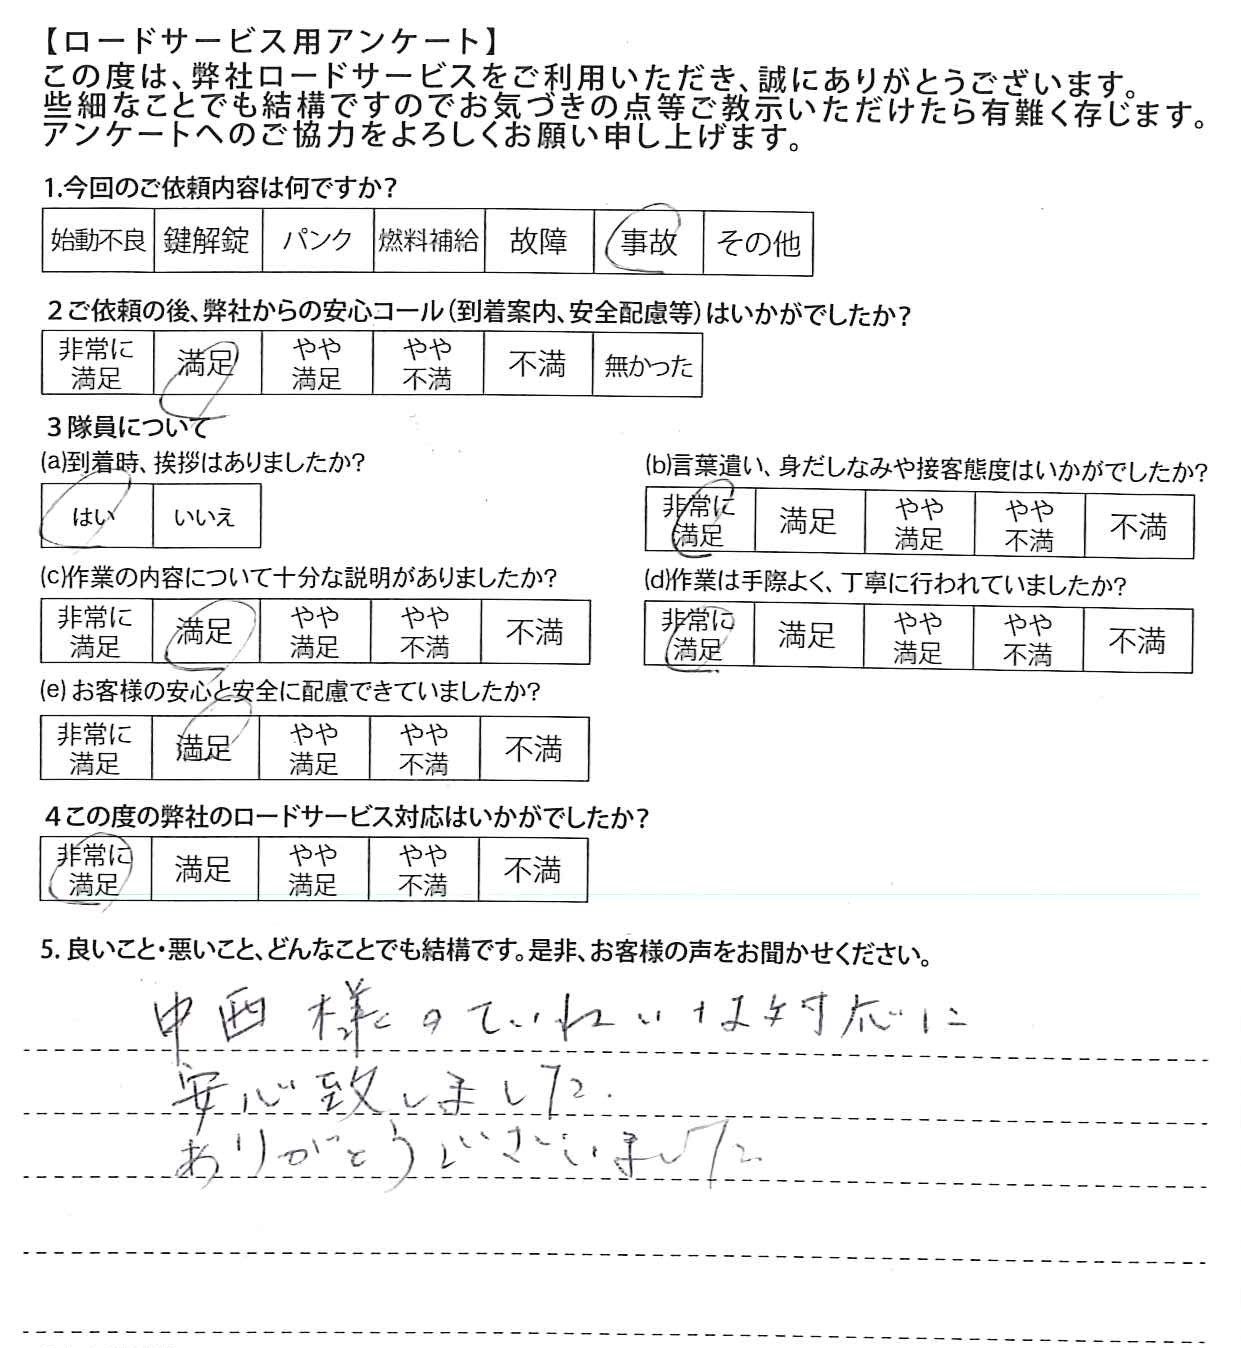 【ロードサービス用アンケート】
この度は、弊社ロードサービスをご利用いただき、誠にありがとうございます。
些細なことでも結構ですのでお気づきの点等ご教示いただけたら有難く存じます。
アンケートへのご協力をよろしくお願い申し上げます。
1.今回のご依頼内容は何ですか?
始動不良 鍵解錠 パンク 燃料補給 故障 事故 その他
2ご依頼の後、弊社からの安心コール(到着案内、安全配慮等)はいかがでしたか?
非常に満足 満足 やや満足 やや不満 不満 無かった
3隊員について
(a)到着時、挨拶はありましたか?
はい いいえ
(b)言葉遣い、身だしなみや接客態度はいかがでしたか?
非常に満足 満足 やや満足 やや不満 不満
(c)作業の内容について十分な説明がありましたか?
非常に満足 満足 やや満足 やや不満 不満
(d)作業は手際よく、丁寧に行われていましたか?
非常に満足 満足 やや満足 やや不満 不満
(e)お客様の安心と安全に配慮できていましたか?
非常に満足 満足 やや満足 やや不満 不満
4この度の弊社のロードサービス対応はいかがでしたか?
非常に満足 満足 やや満足 やや不満 不満
5.良いこと・悪いこと、どんなことでも結構です。是非、お客様の声をお聞かせください。
中西様のていねいな対応に
安心致しました.
ありがとうございました